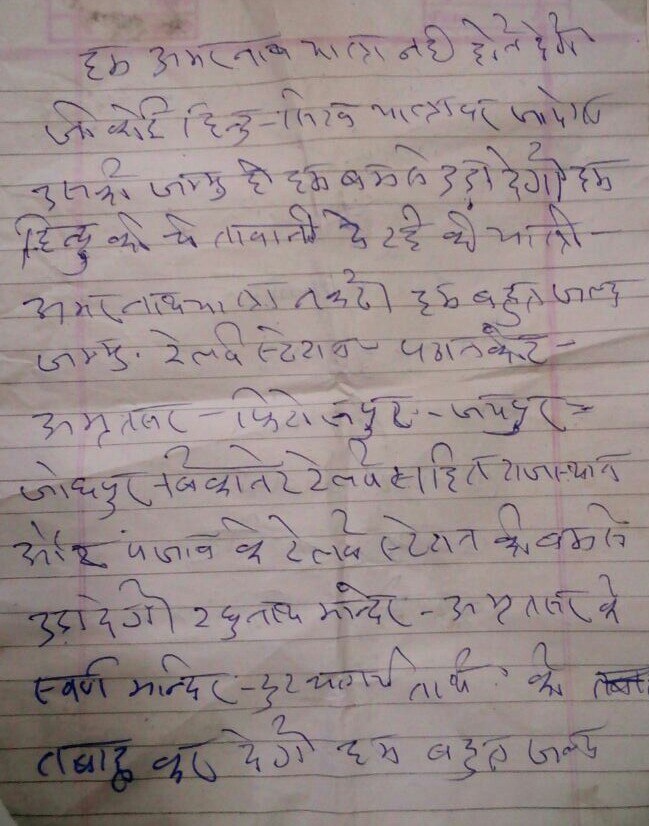 हम अमरनाथ यात्रा नही होने देगे
जो कोई हिन्दु-सिख यात्रा पर जायेगा
उसको जम्मु ही हम बमसे उड़ा देगे हम
हिन्दु को चेतावानी दे रहे की यात्री-
अमरनाथ यात्रा न करे। हम बहुत जल्द
जम्मु. रेलवे स्टेशन- पठानकोट-
अमृतसर - फिरोजपुर - जयपुर-
जोधपुर - बिकानेर रेलवे सहित राजस्थान
और पंजाब के रेलवे स्टेशन को बमसे
उड़ा देगे। रघुनाथ मन्दिर - अमृतसर के
स्वर्ण मन्दिर - को
तबाह कर देगे हम बहुत जल्द